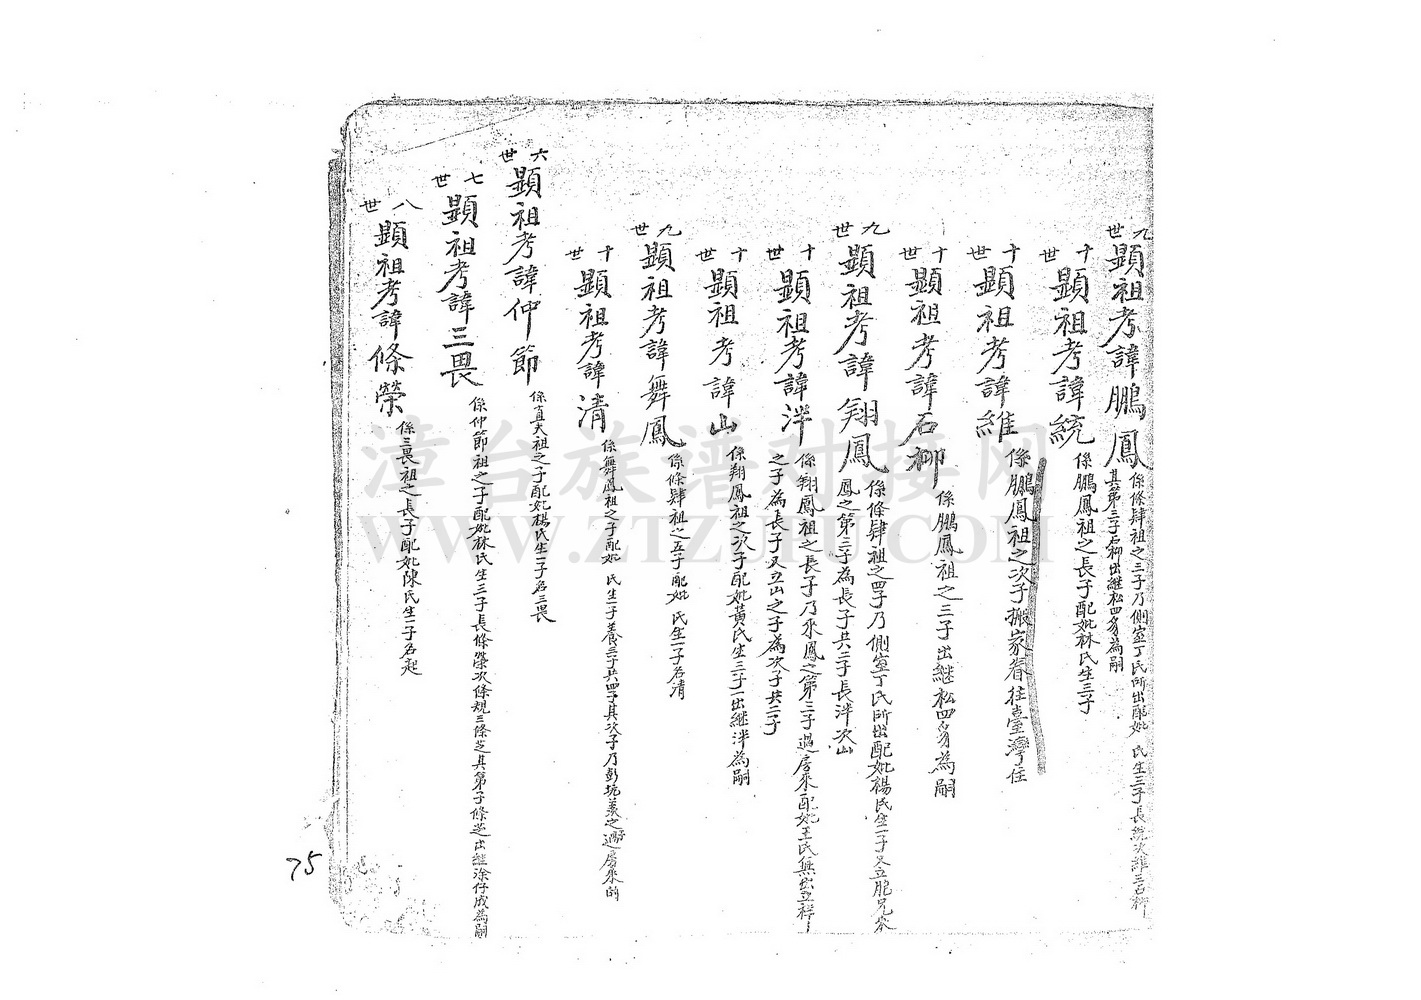 九世 顯祖考諱鵬鳳 係條肄祖之三子乃側室丁氏所出配妣 氏生三子長統次維三石柳
其第三子石柳出継松四房為嗣
十世 顯祖考諱統 係鵬鳳祖之長子配妣林氏生三子
十世 顯祖考諱維 係鵬鳳祖之次子搬家眷往臺灣住
十世 顯祖考諱石柳 係鵬鳳祖之三子出継松四房為嗣
九世 顯祖考諱翔鳳 係條肄祖之四子乃側室丁氏所出配妣楊氏生一子又立胞兄
鳳之第三子為長子共二子長泮次山
十世 顯祖考諱泮 係翔鳳祖之長子乃來鳳之第三子過房來配妣王氏無出立祥
之子為長子又立山之子為次子共二子
十世 顯祖考諱山 係翔鳳祖之次子配妣黃氏生三子一出継泮為嗣
九世 顯祖考諱舞鳳 係條肄祖之五子配妣 氏生一子名清
十世 顯祖考諱清 係舞鳳祖之子配妣 氏生一子養三子共四子其次子乃彭坑義之子過房來的
六世 顯祖考諱仲節 係直夫祖之子配妣楊氏生一子名三畏
七世 顯祖考諱三畏 係仲節祖之子配妣林氏生三子長條榮次條規三條芝其第三子條芝出継涂仔成為嗣
八世 顯祖考諱條榮 係三畏祖之長子配妣陳氏生一子名起
75
漳台族谱对接网
WWW.ZTZUPU.COM